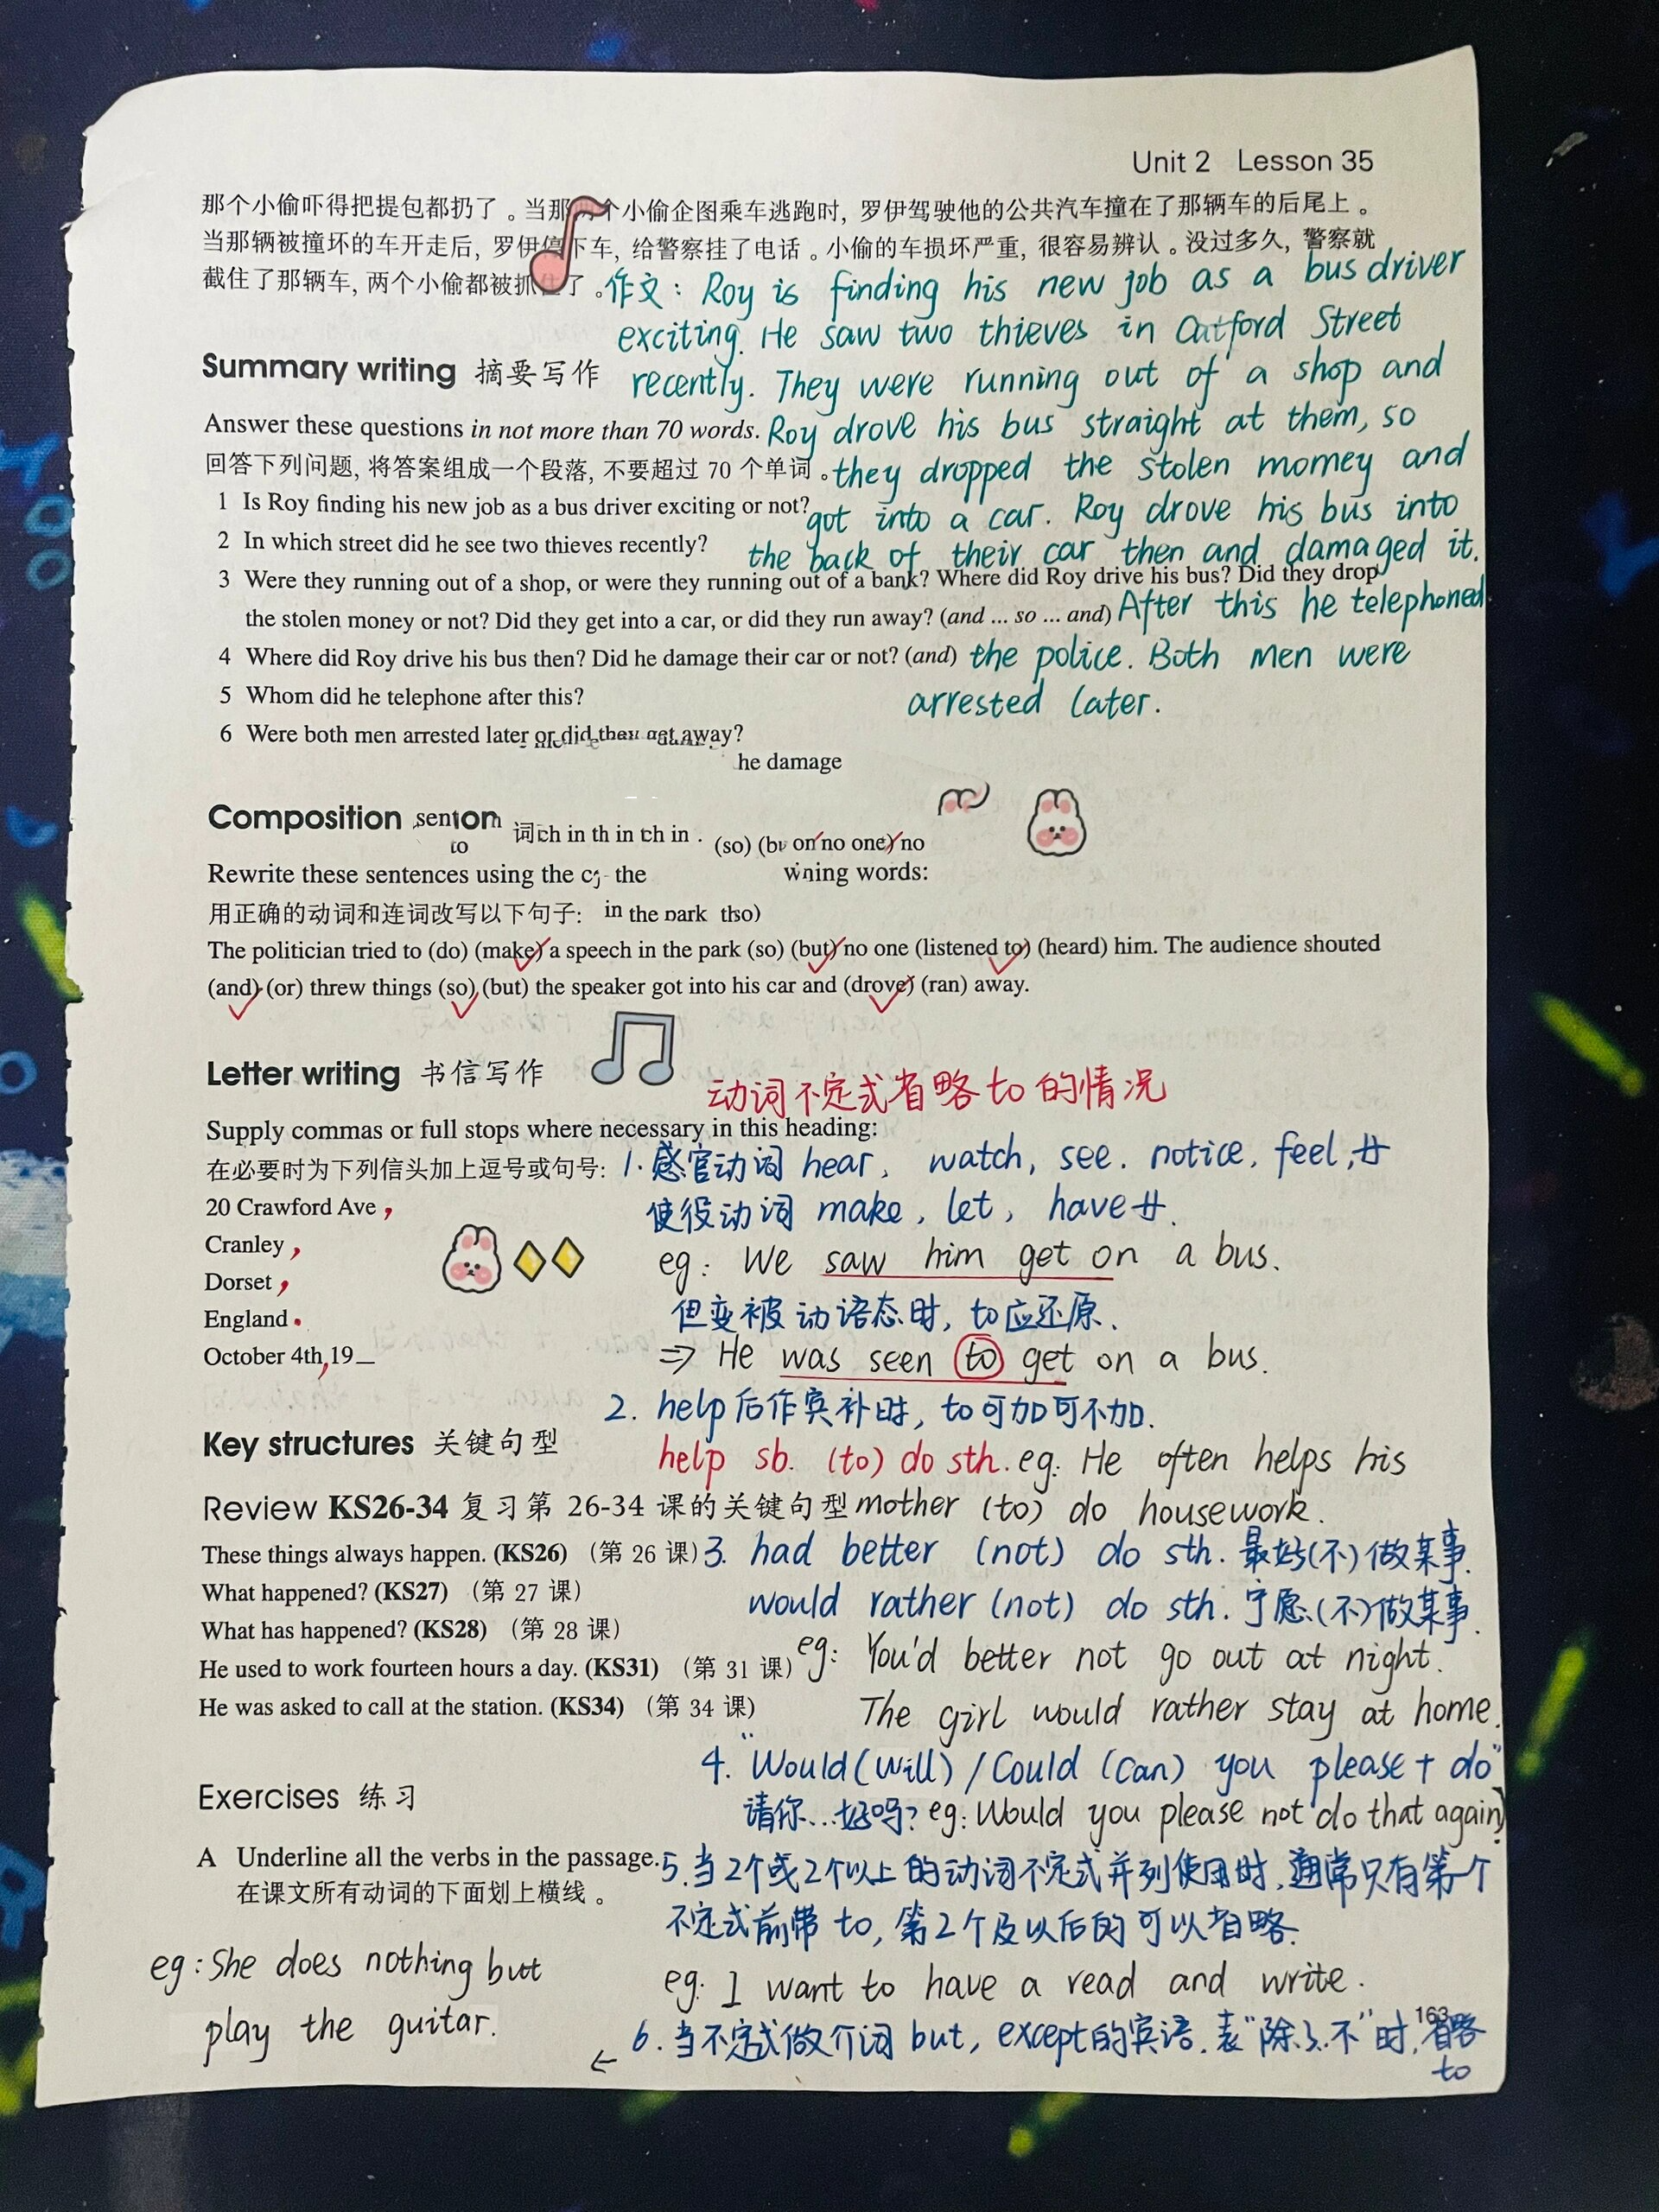 Unit 2 Lesson 35
那个小偷吓得把提包都扔了。当那两个小偷企图乘车逃跑时, 罗伊驾驶他的公共汽车撞在了那辆车的后尾上。
当那辆被撞坏的车开走后, 罗伊停下车, 给警察挂了电话。小偷的车损坏严重, 很容易辨认。没过多久, 警察就
截住了那辆车, 两个小偷都被抓住了。
作文: Roy is finding his new job as a bus driver
exciting. He saw two thieves in Catford Street
recently. They were running out of a shop and
Roy drove his bus straight at them, so
they dropped the stolen momey and
got into a car. Roy drove his bus into
the back of their car then and damaged it.
After this he telephoned
the police. Both men were
arrested later.
Summary writing 摘要写作
Answer these questions in not more than 70 words.
回答下列问题, 将答案组成一个段落, 不要超过 70 个单词。
1 Is Roy finding his new job as a bus driver exciting or not?
2 In which street did he see two thieves recently?
3 Were they running out of a shop, or were they running out of a bank? Where did Roy drive his bus? Did they drop
the stolen money or not? Did they get into a car, or did they run away? (and ... so ... and)
4 Where did Roy drive his bus then? Did he damage their car or not? (and)
5 Whom did he telephone after this?
6 Were both men arrested later or did they get away?
he damage
Composition
词ch in th in ch in . (so) on no one) no
to
Rewrite these sentences using the the words:
用正确的动词和连词改写以下句子: in the park
The politician tried to (do) (make) a speech in the park (so) (but) no one (listened to) (heard) him. The audience shouted
(and) (or) threw things (so) (but) the speaker got into his car and (drove) (ran) away.
Letter writing 书信写作
Supply commas or full stops where necessary in this heading:
在必要时为下列信头加上逗号或句号:
20 Crawford Ave ,
Cranley ,
Dorset ,
England .
October 4th, 19__
动词不定式省略to的情况
1. 感官动词 hear, watch, see. notice, feel, 廾
使役动词 make, let, have廾.
eg: We saw him get on a bus.
但变被动语态时, to应还原.
⇒ He was seen to get on a bus.
2. help后作宾补时, to可加可不加.
help sb. (to) do sth. eg: He often helps his
mother (to) do housework.
3. had better (not) do sth. 最好(不)做某事.
would rather (not) do sth. 宁愿(不)做某事.
eg: You'd better not go out at night.
The girl would rather stay at home.
4. "Would(will) / Could (can) you please + do"
请你...好吗? eg: Would you please not do that again?
5. 当2个或2个以上的动词不定式并列使用时, 通常只有第一个
不定式前带 to, 第2个及以后的可以省略.
eg: I want to have a read and write.
6. 当不定式做介词 but, except的宾语. 表"除了..不"时, 省略
to
←
eg: She does nothing but
play the guitar.
Key structures 关键句型
Review KS26-34 复习第 26-34 课的关键句型
These things always happen. (KS26) (第 26 课)
What happened? (KS27) (第 27 课)
What has happened? (KS28) (第 28 课)
He used to work fourteen hours a day. (KS31) (第 31 课)
He was asked to call at the station. (KS34) (第 34 课)
Exercises 练习
A Underline all the verbs in the passage.
在课文所有动词的下面划上横线。
163